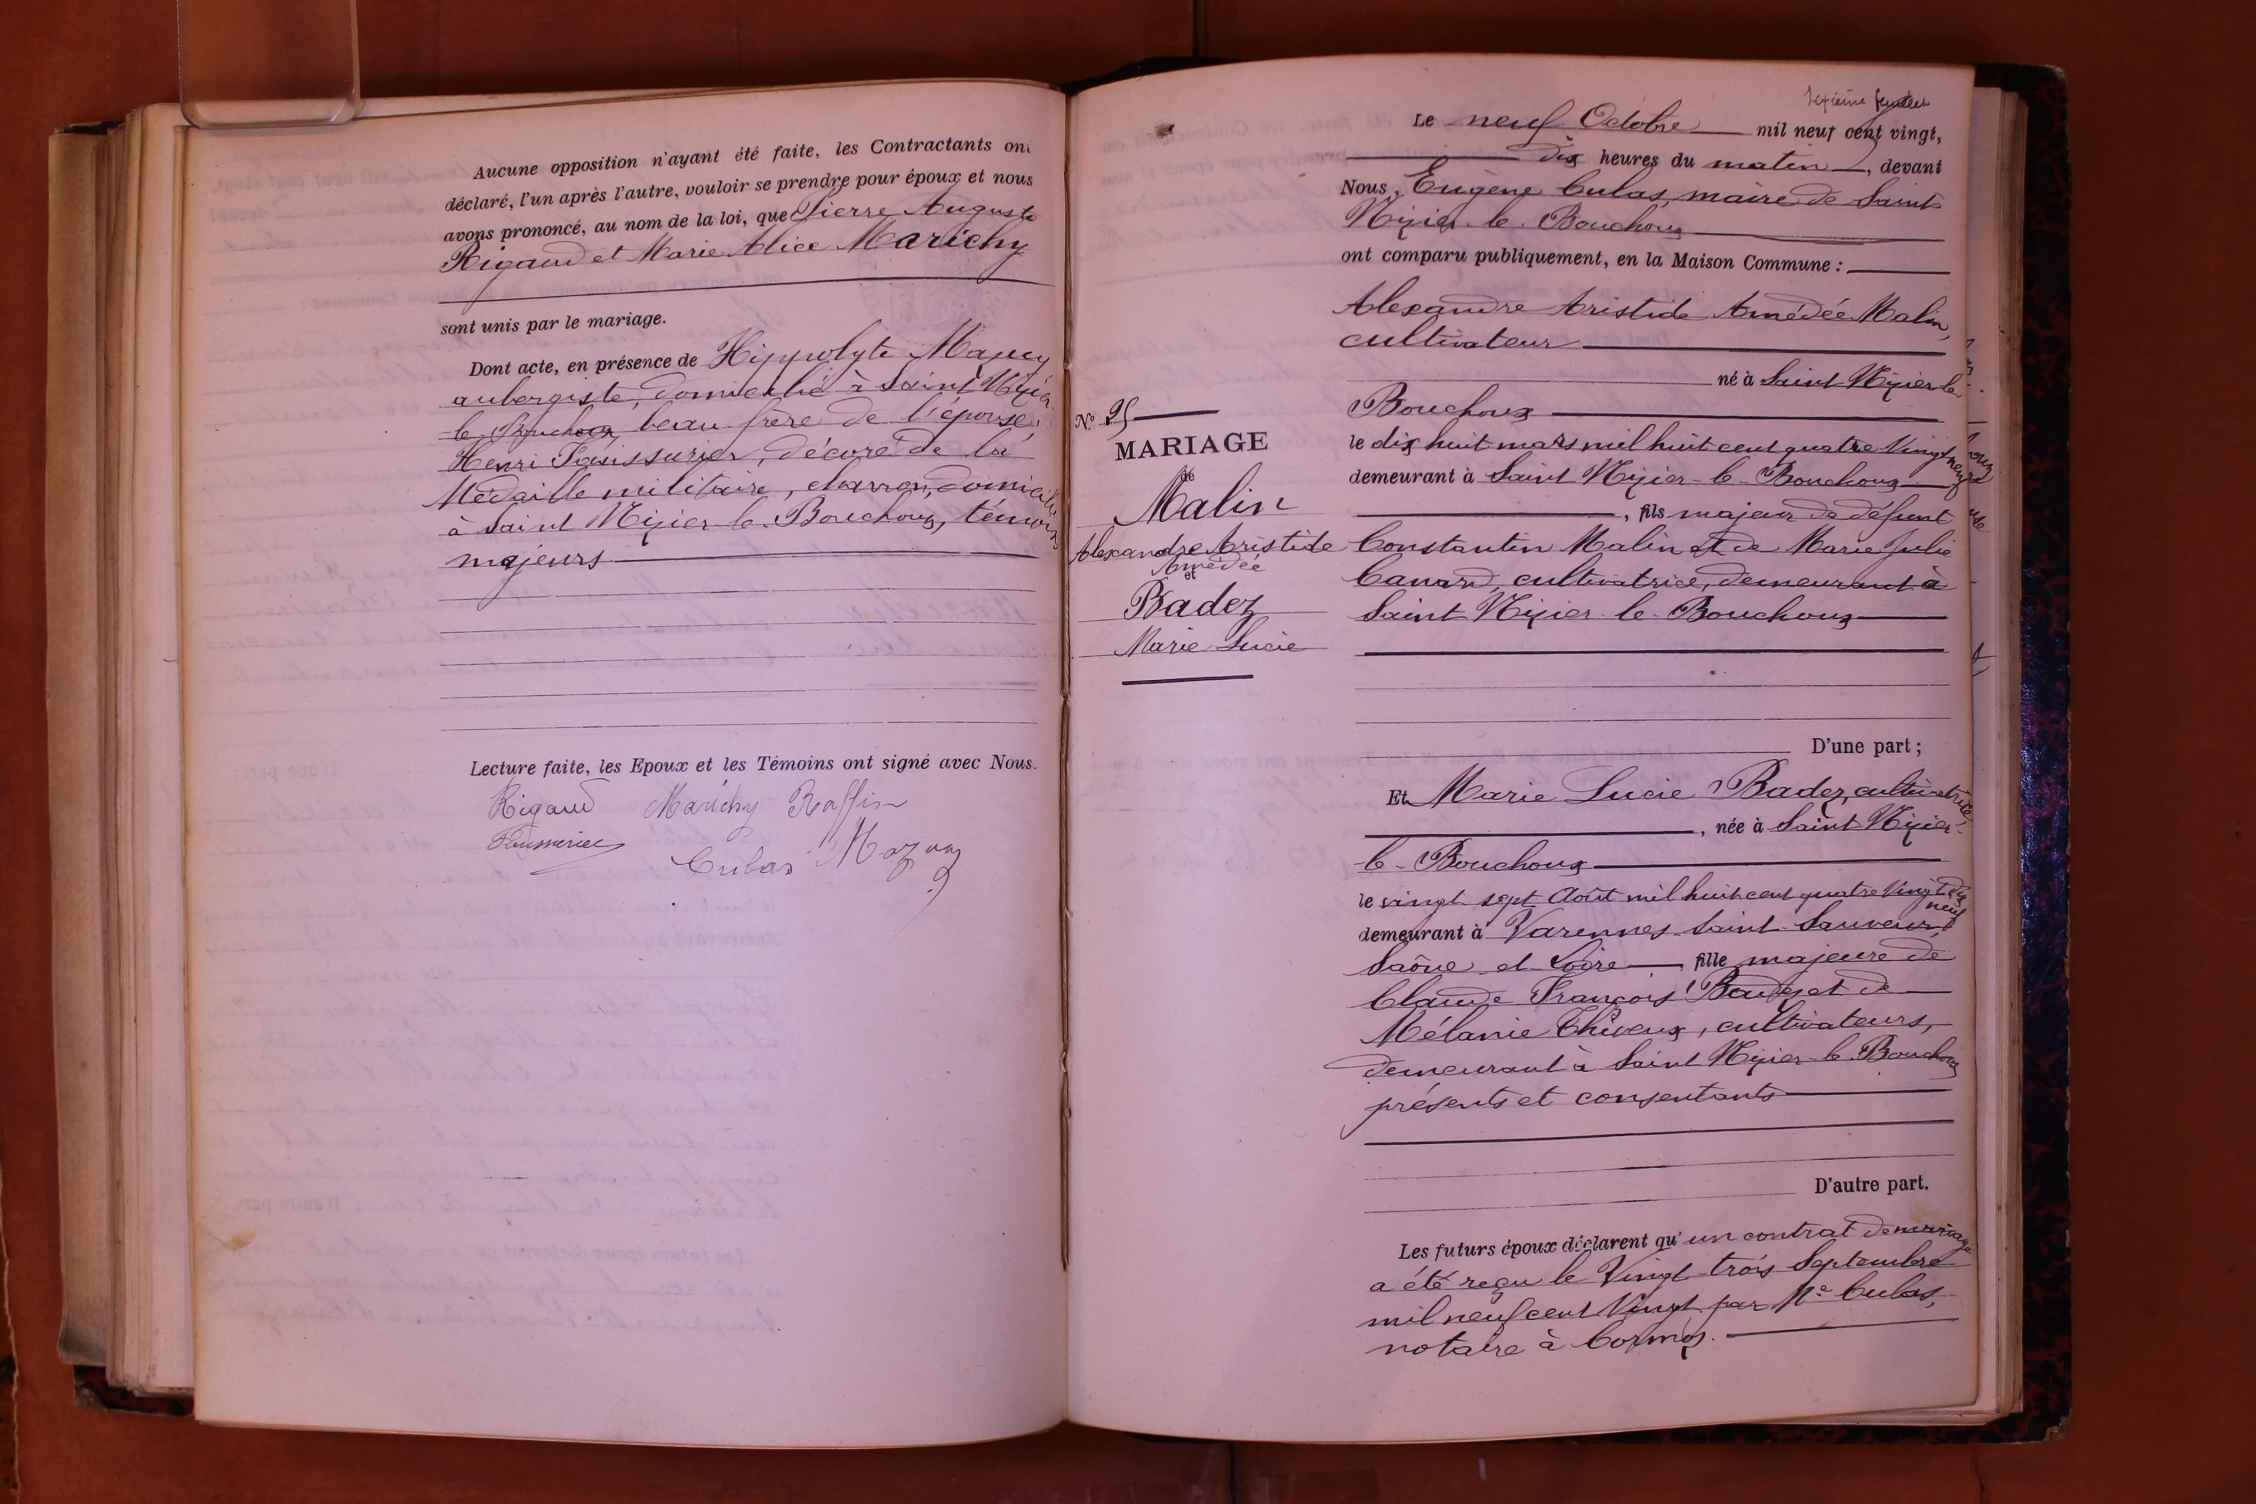 Aucune opposition n'ayant été faite, les Contractants ont
déclaré, l'un après l'autre, vouloir se prendre pour époux et nous
avons prononcé, au nom de la loi, que Pierre Auguste
Rigaud et Marie Alice Marichy
sont unis par le mariage.
Dont acte, en présence de Hippolyte Mazuy
aubergiste, domicilié à Saint Nizier
le Bouchoux, beau frère de l'épouse,
Henri Saussurier, décoré de la
Médaille militaire, charron, domicilié
à Saint Nizier le Bouchoux, témoins
majeurs
Lecture faite, les Epoux et les Témoins ont signé avec Nous.
Rigaud Marichy Raffin
Culas Mazuy
feuillet
Le neuf Octobre mil neuf cent vingt,
dix heures du matin, devant
Nous, Eugène Culas, maire de Saint
Nizier-le-Bouchoux
ont comparu publiquement, en la Maison Commune :
Alexandre Aristide Amédée Malin,
cultivateur
né à Saint Nizier-le
Bouchoux
le dix huit mars mil huit cent quatre Vingt
demeurant à Saint Nizier-le-Bouchoux
, fils majeur de défunt
Constantin Malin et de Marie Julie
Canard, cultivatrice, demeurant à
Saint Nizier-le-Bouchoux
D'une part ;
Et Marie Lucie Badez, cultivatrice,
, née à Saint Nizier-
le-Bouchoux
le vingt sept Août mil huit cent quatre Vingt dix
neuf
demeurant à Varennes Saint Sauveur,
Saône et Loire, fille majeure de
Claude François Badez et de
Mélanie Thiveux, cultivateurs,
demeurant à Saint Nizier-le-Bouchoux
présents et consentants
D'autre part.
Les futurs époux déclarent qu'un contrat de mariage
a été reçu le Vingt trois Septembre
mil neuf cent Vingt par Me Culas,
notaire à Cormoz.
N° 25
MARIAGE
de
Malin
Alexandre Aristide
Amédée
et
Badez
Marie Lucie